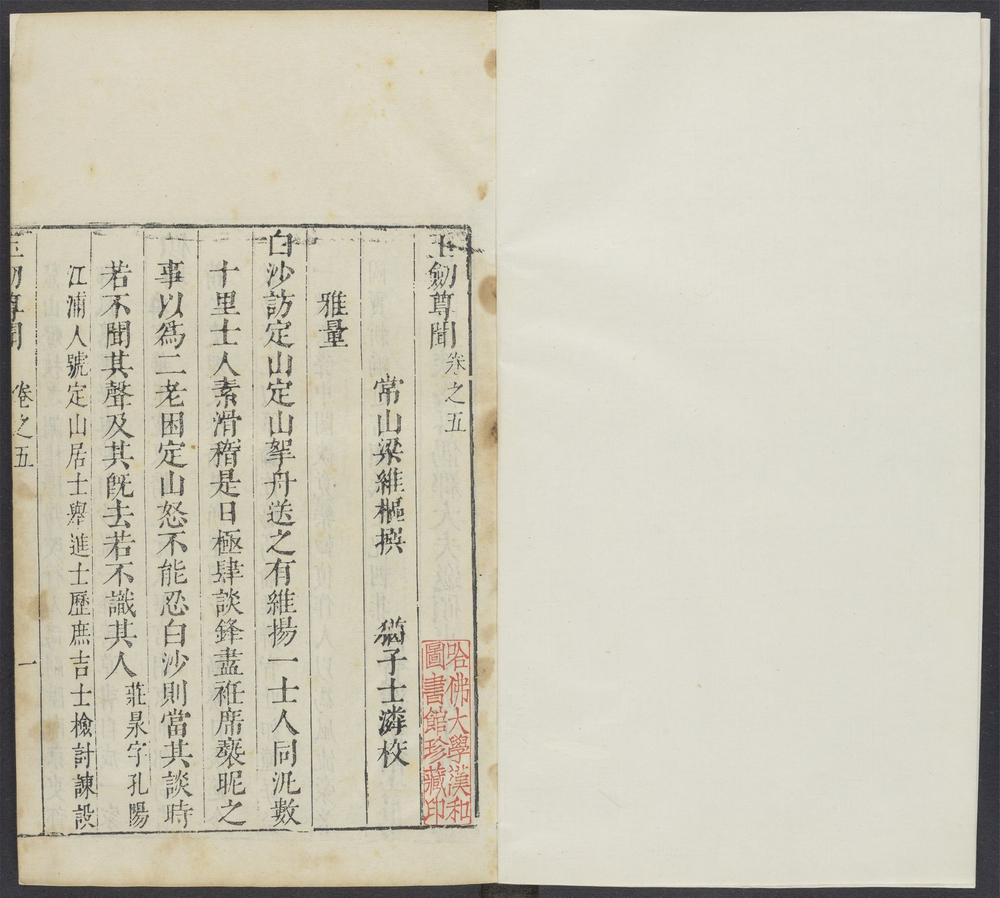 玉劒尊聞 卷之五
哈佛大學漢和
圖書館珍藏印
常山梁維樞撰 猶子士濤校
雅量
白沙訪定山定山挐舟送之有維揚一士人同汎數
十里士人素滑稽是日極肆談鋒盡袵席褻昵之
事以爲二老困定山怒不能忍白沙則當其談時
若不聞其聲及其旣去若不識其人 莊㫤字孔陽
江浦人號定山居士舉進士歷庶吉士檢討諫設
玉劒尊聞 卷之五 一